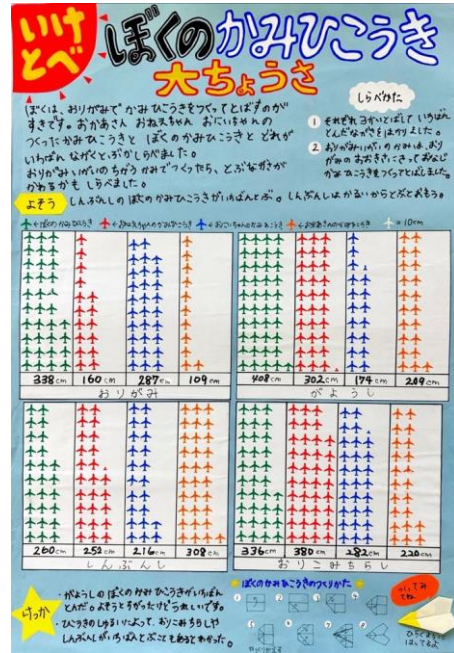 いけ
とべ
ぼくのかみひこうき
大ちょうさ
ぼくは、おりがみで かみひこうきをつくってとばすのが
すきです。おかあさん おねえちゃん おにいちゃんの
つくったかみひこうきと ぼくのかみひこうきと どれが
いちばん ながくとぶかしらべました。
おりがみいがいのちがうかみでつくったら、とぶながさが
かわるかも しらべました。
しらべかた
① それぞれ3かいとばして いちばん
とんだながさをはかりました。
② おりがみいがいのかみは、おり
がみの おおきさにきっておなじ
かみひこうきをつくってとばしました。
よそう
しんぶんしの ぼくのかみひこうきがいちばんとぶ。しんぶんしはかるいからとぶとおもう。
←ぼくのかみひこうき
←おねえちゃんのかみひこうき
←おにいちゃんのかみひこうき
←おかあさんのかみひこうき
=10cm
338cm 160cm 287cm 109cm
おりがみ
408cm 302cm 174cm 209cm
がようし
260cm 252cm 216cm 308cm
しんぶんし
336cm 380cm 282cm 220cm
おりこみちらし
けっか
・がようしの ぼくの かみひこうきがいちばん
とんだ。よそうとちがったけどうれしいです。
・ひこうきのしゅるいによって、おりこみちらしや
しんぶんしがいちばんとぶこともあるとわかった。
ぼくのかみひこうきのつくりかた
① ② ③ ④
⑤
つくってみ
てね